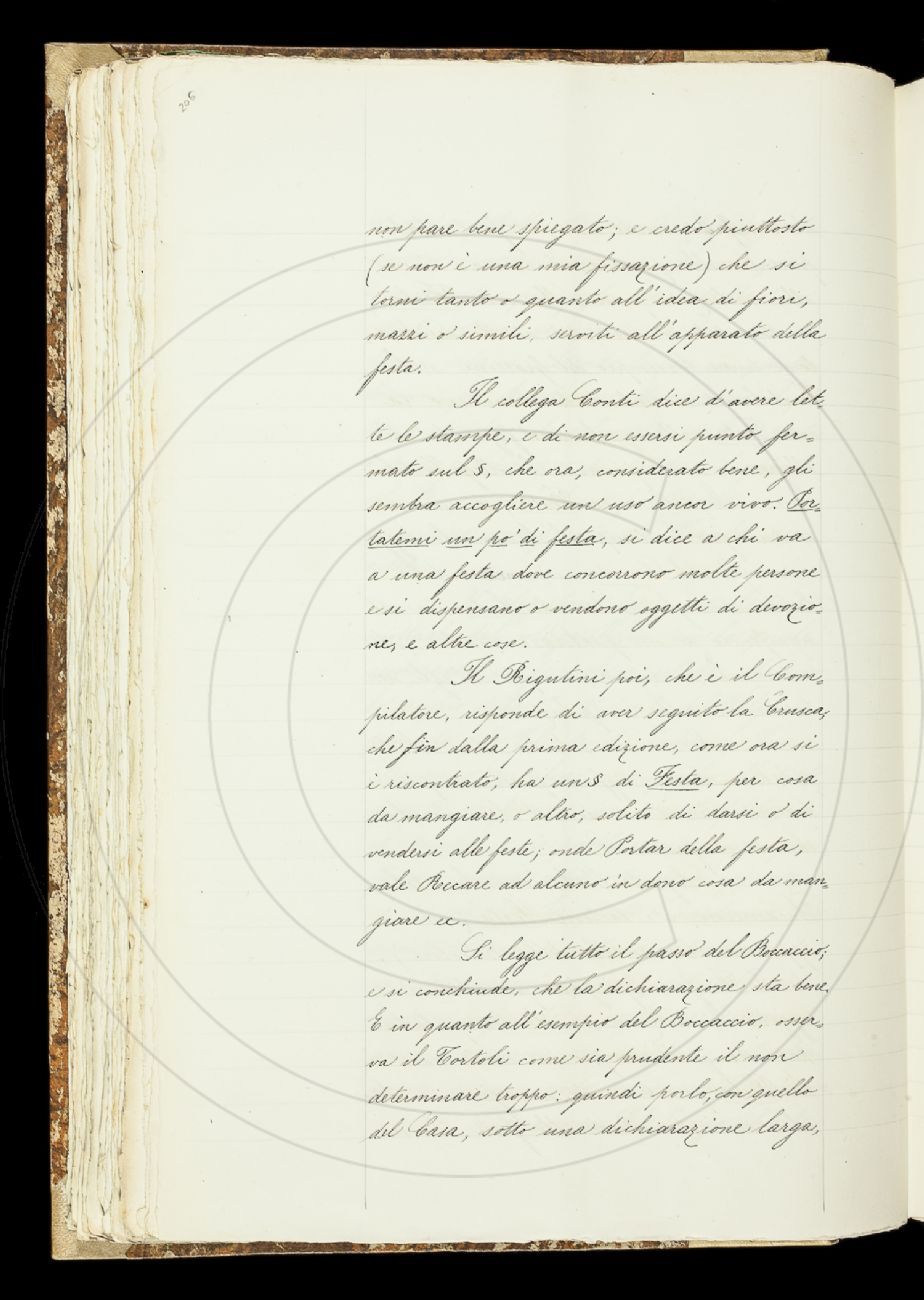 206
non pare bene spiegato; e credo piuttosto
(se non è una mia fissazione) che si
torni tanto o quanto all'idea di fiori,
mazzi o simili, serviti all'apparato della
festa.
Il collega Conti dice d'avere let-
te le stampe, e di non essersi punto fer-
mato sul §, che ora, considerato bene, gli
sembra accogliere un uso ancor vivo. Por-
tatemi un po' di festa, si dice a chi va
a una festa dove concorrono molte persone
e si dispensano o vendono oggetti di devozio-
ne, e altre cose.
Il Rigutini poi, che è il Com-
pilatore, risponde di aver seguito la Crusca,
che fin dalla prima edizione, come ora si
è riscontrato, ha un § di Festa, per cosa
da mangiare, o altro, solito di darsi o di
vendersi alle feste; onde Portar della festa,
vale Recare ad alcuno in dono cosa da man-
giare ec.
Si legge tutto il passo del Boccaccio;
e si conchiude, che la dichiarazione sta bene.
E in quanto all'esempio del Boccaccio, osser-
va il Tortoli come sia prudente il non
determinare troppo: quindi porlo, con quello
del Casa, sotto una dichiarazione larga,